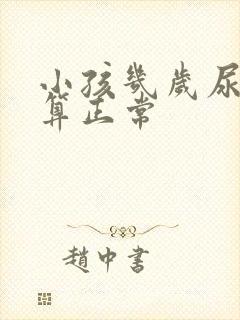 小孩幾歲尿
算正常
趙中書